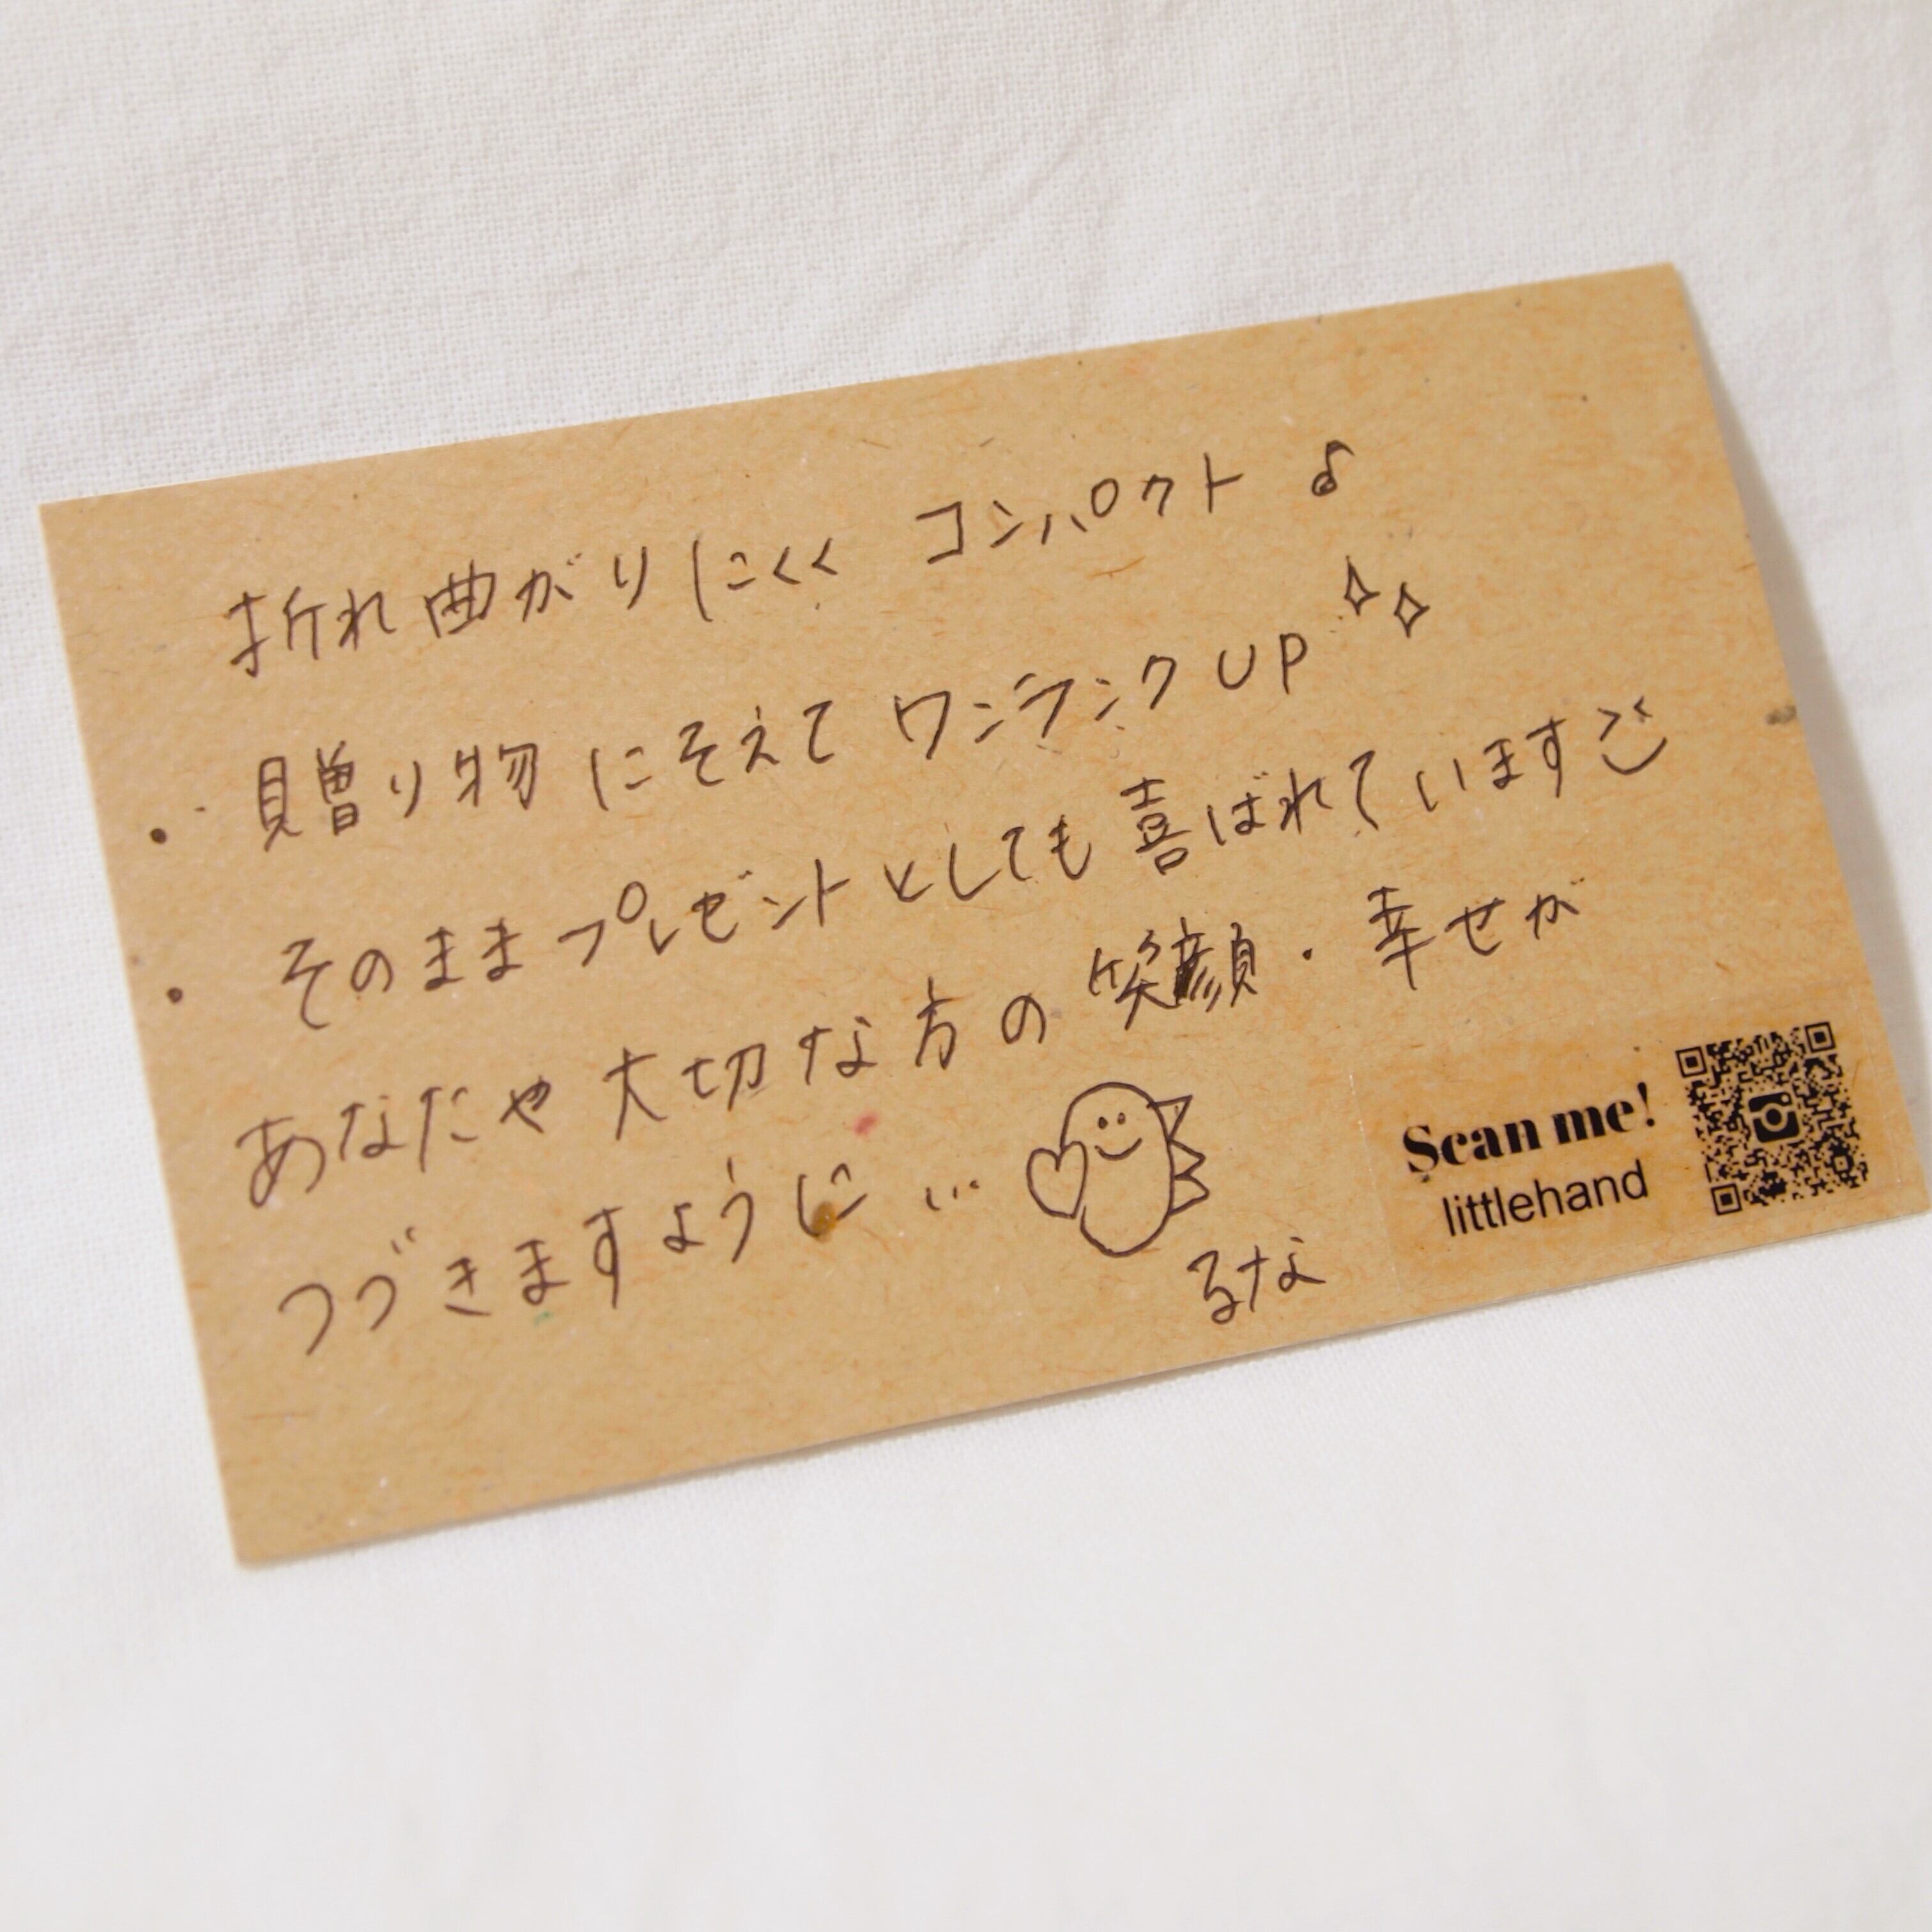 折れ曲がりにくく コンパクト♪
・贈り物にそえてワンランクUP
・そのままプレゼントとしても喜ばれています
あなたや大切な方の笑顔・幸せが
つづきますように…
るな
Scan me!
littlehand